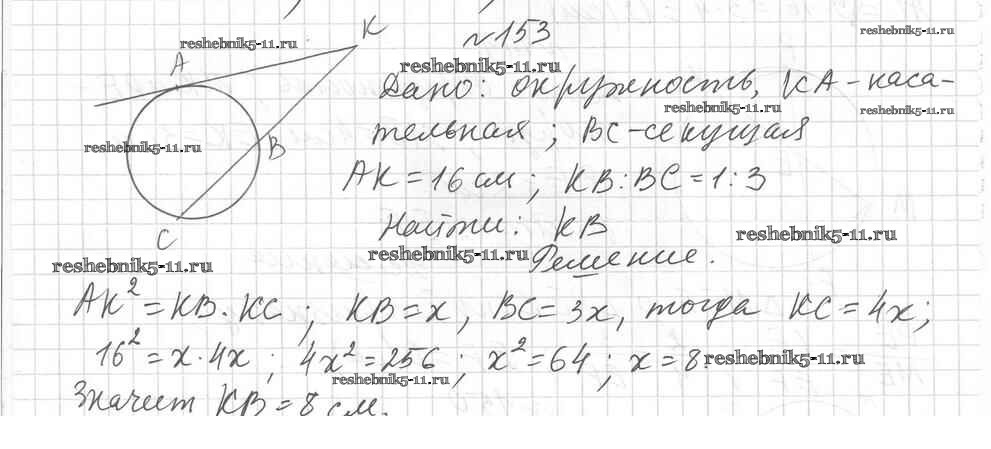 K
№153
reshebnik5-11.ru
reshebnik5-11.ru
A
reshebnik5-11.ru
Дано: окружность, KA-каса-
reshebnik5-11.ru
reshebnik5-11.ru
тельная; BC-секущая
reshebnik5-11.ru
B
AK=16 см; KB:BC=1:3
Найти: KB
reshebnik5-11.ru
C
reshebnik5-11.ru
reshebnik5-11.ru
Решение.
AK²=KB·KC; KB=x, BC=3x, тогда KC=4x;
16²=x·4x; 4x²=256; x²=64; x=8.
reshebnik5-11.ru
reshebnik5-11.ru
Значит KB=8 см.